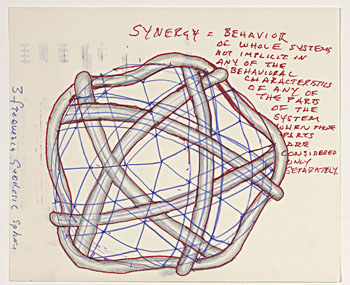 SYNERGY = BEHAVIOR
OF WHOLE SYSTEMS
NOT IMPLICIT IN
ANY OF THE
BEHAVIORAL
CHARACTERISTICS
OF ANY OF
THE PARTS
OF THE
SYSTEM
WHEN THE
PARTS
ARE
CONSIDERED
ONLY
SEPARATELY.
3-frequency Geodesic Sphere